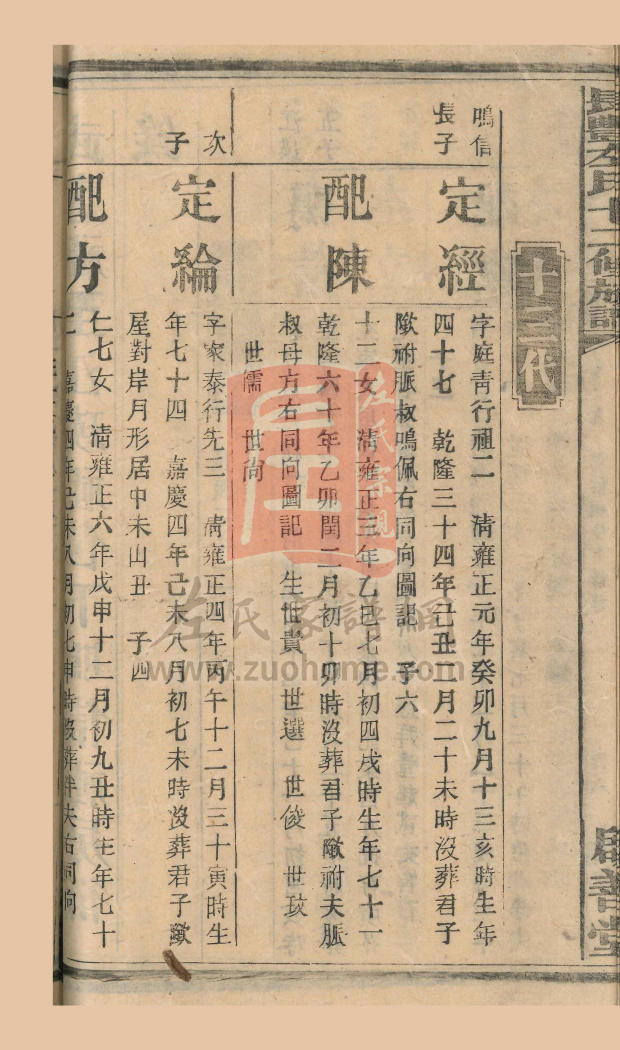 長豐左氏十二修族譜
啟善堂
十三代
鳴信
長子
定經
字庭青行祖二 清雍正元年癸卯九月十三亥時生年
四十七 乾隆三十四年己丑二月二十未時沒葬君子
歐祔脈叔鳴佩右同向圖記 子六
配陳
十二女 清雍正三年乙巳七月初四戌時生年七十一
乾隆六十年乙卯閏二月初十卯時沒葬君子歐祔夫脈
叔母方右同向圖記 生世貴 世選 世俊 世玫
世儒 世尚
次
子
定綸
字家泰行先三 清雍正四年丙午十二月三十寅時生
年七十四 嘉慶四年己未八月初七未時沒葬君子歐
屋對岸月形居中未山丑 子四
配方
仁七女 清雍正六年戊申十二月初九丑時生年七十
二 嘉慶四年己未八月初七申時沒葬伴夫右同向
左氏宗親
左氏家譜網
www.zuohome.com